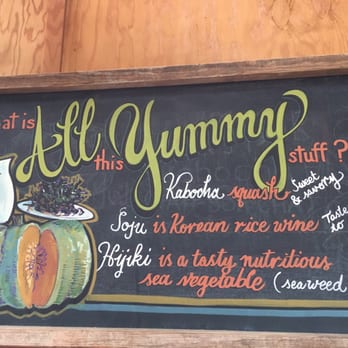 at is All this Yummy stuff?
Kabocha squash Sweet & savory
Soju is Korean rice wine Taste so
Hijiki is a tasty nutritious
sea vegetable (seaweed